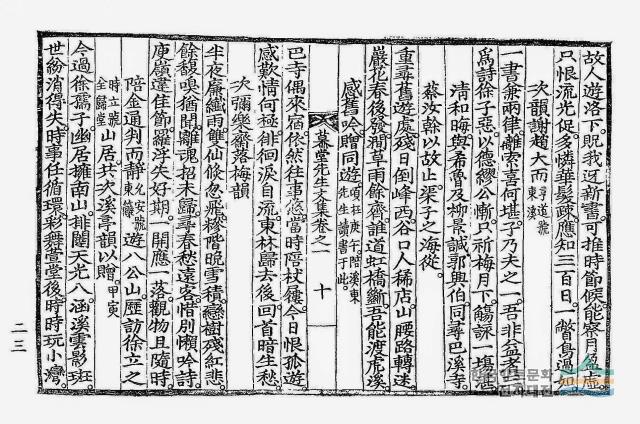 故人遊洛下。旣我迓新書。可推時節候。能察月盈虛。
只恨流光促。多憐華髮疎。應知三百日。一瞥鳥過
次韻謝趙大而 尋道號東溪
一書兼兩律。離索喜何堪。子乃夫之一。吾非益者
爲詩徐子惡。以德繆公慚。只祈梅月下。觴詠一場湛
淸和晦與希魯及柳景誠郭興伯。同尋巴溪寺。
蔡汝榦以故止。渠子之海從。
重尋舊遊處。殘日倒峰西。谷口人稀店。山腰路轉迷。
巖花春後發。澗草雨餘齊。誰道虹橋斷。吾能渡虎溪。
感舊吟贈同遊。 項在庚午陪溪東先生讀書于此。
暮堂先生文集卷之一 十
巴寺偶來宿。依然往事悠。當時陪杖屨。今日恨孤遊。
感歎情何極。徘徊淚自流。東林歸去後。回首暗生愁。
次彌樂齋落梅韻
半夜廉纖雨。雙仙倏忽飛。糝階晩雪積。戀樹殘紅悲。
餘馥嗅猶聞。離魂招未歸。尋春愁遠客。惜別懶吟詩。
庾嶺違佳節。羅浮失好期。一開應一落。觀物且隨時。
陪金通判而靜 允安號東籬 遊八公山。歷訪徐立之
時立號全歸堂 山居。共次溪亭韻以贈。 甲寅
今過徐孺子。幽居擁南山。排闥天光入。涵溪雲影斑
世紛消得失。時事任循環。彩舞萱堂後。時時玩小灣。
二三